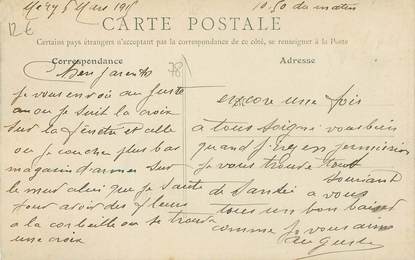 Méry 6 Mars 1915 10.50 du matin
12€
CARTE POSTALE
Certains pays étrangers n'acceptant pas la correspondance de ce côté, se renseigner à la Poste
Correspondance
Adresse
78
Chers parents
je vous envoie
ou je suit la croix
sur la fenetre et celle
ou je couche plus bas
magasin d'armes sur
le mur alors que je saute
pour avoir des fleurs
a la corbeille ou se trouve
une croix
encore une fois
a tous soignez vous bien
quand j'irez en permission
je vous trouve tout
souriant
de santé a vous
tous un bon baiser
comme je vous aime
Auguste